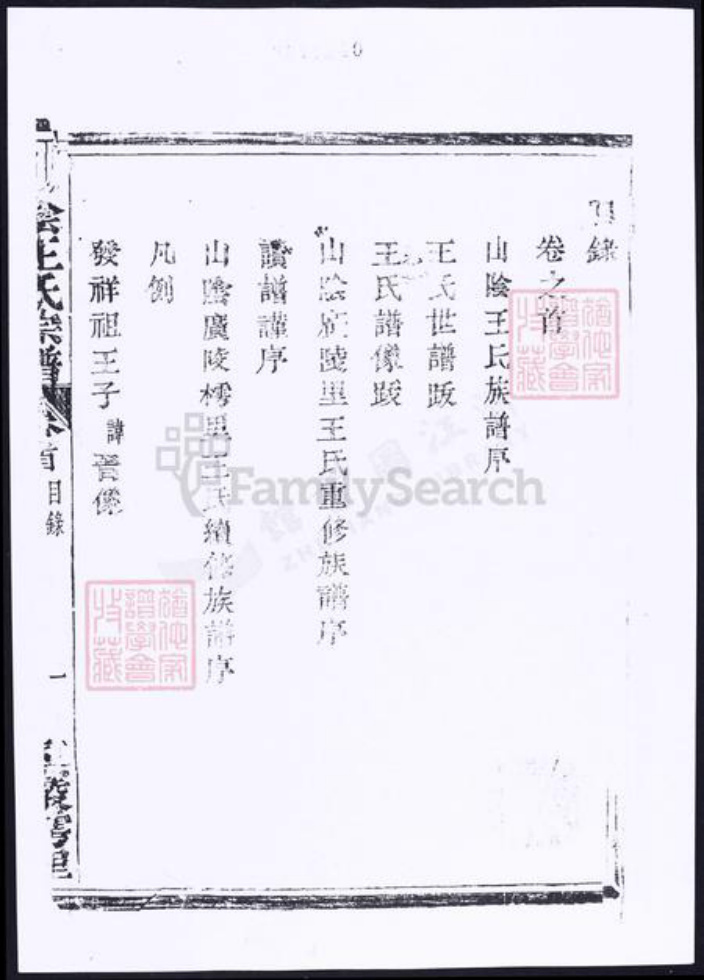 目錄
卷之首
山陰王氏族譜序
王氏世譜跋
王氏譜像跋
山陰廣陵里王氏重修族譜序
讀譜謹序
山陰廣陵樗里王氏續修族譜序
凡例
發祥祖王子諱晉像
陰王氏宗譜
首 目錄
一
陵
里
猶他家譜學會收藏
猶他家譜學會收藏
FamilySearch